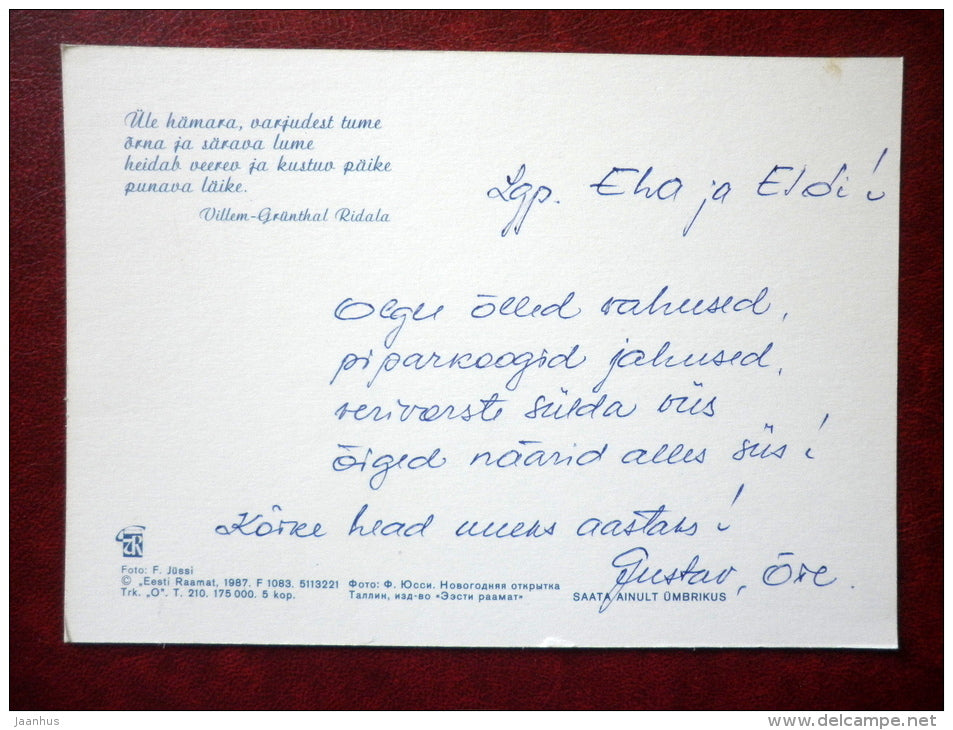 Üle hämara, varjudest tume
õrna ja särava lume
heidab veerev ja kustuv päike
punava läike.
Villem-Grünthal Ridala
Lgp. Eha ja Eldi!
Olgu õlled vahused,
piparkoogid jahused,
verivorste sülda viis
õiged näärid alles siis!
Kõike head uueks aastaks!
Gustav, Õie.
Foto: F. Jüssi
© „Eesti Raamat, 1987. F 1083. 5113221
Trk. „O“. T. 210. 175 000. 5 kop.
Фото: Ф. Юсси. Новогодняя открытка
Таллин, изд-во «Ээсти раамат»
SAATA AINULT ÜMBRIKUS
jaanhus
www.delcampe.net